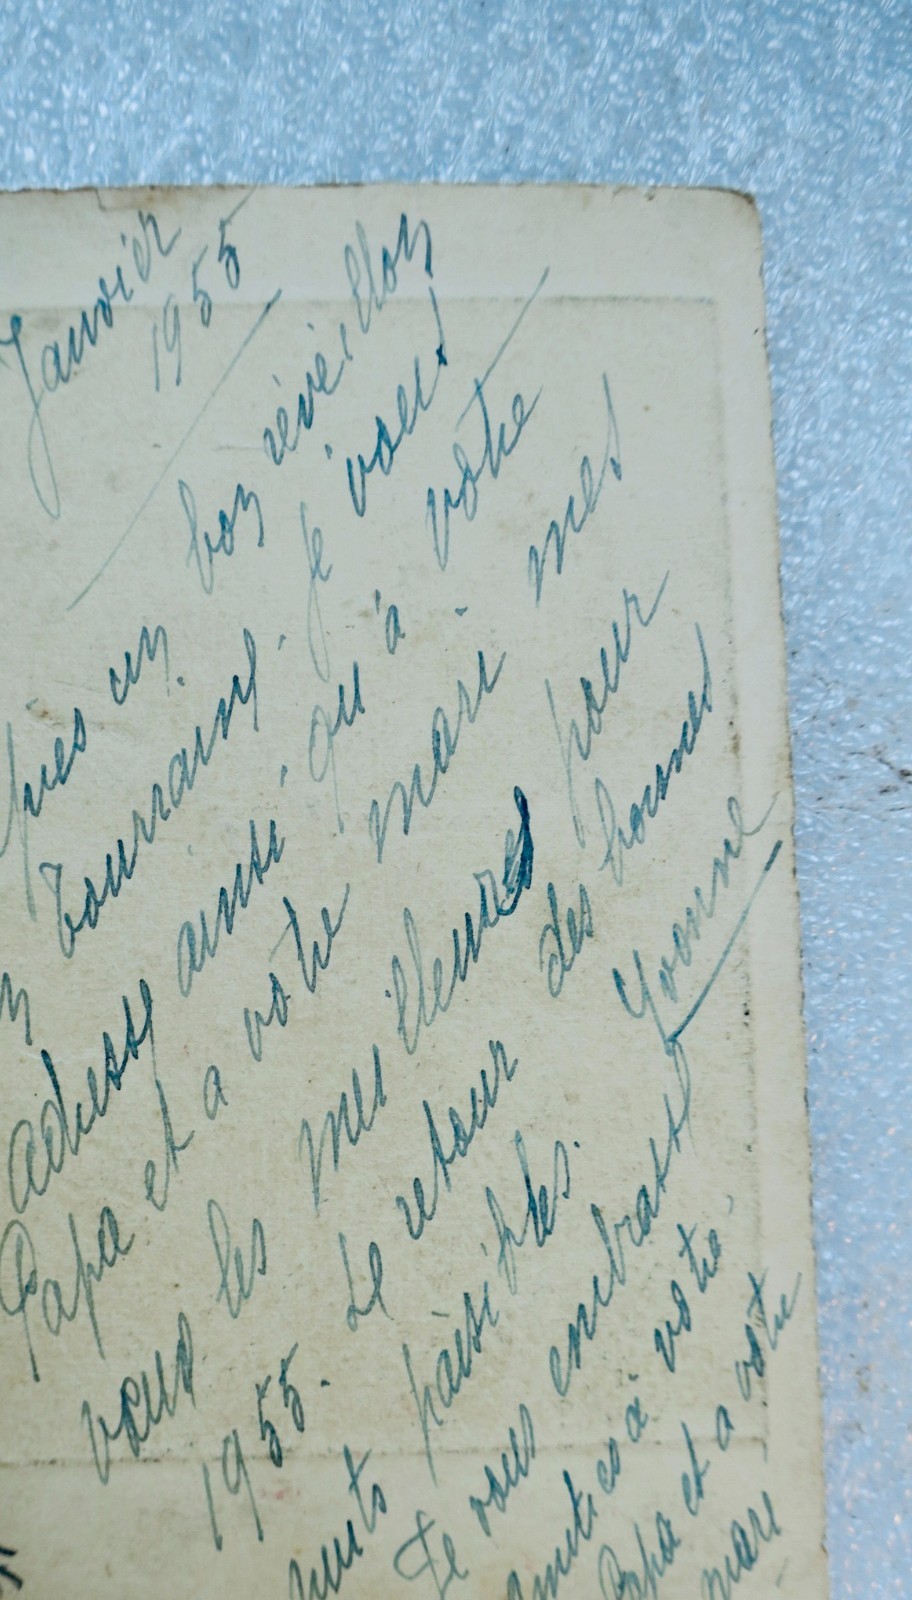 Janvier
1955
un bon réveillon
Tourraine. Je vous
adresse ainsi qu'à votre
Papa et a votre mari mes
vœux les meilleures pour
1955. Le retour des bonnes
nuits paisibles. Yvonne
Je vous embrasse
Amitiés à votre
Papa et a votre
mari